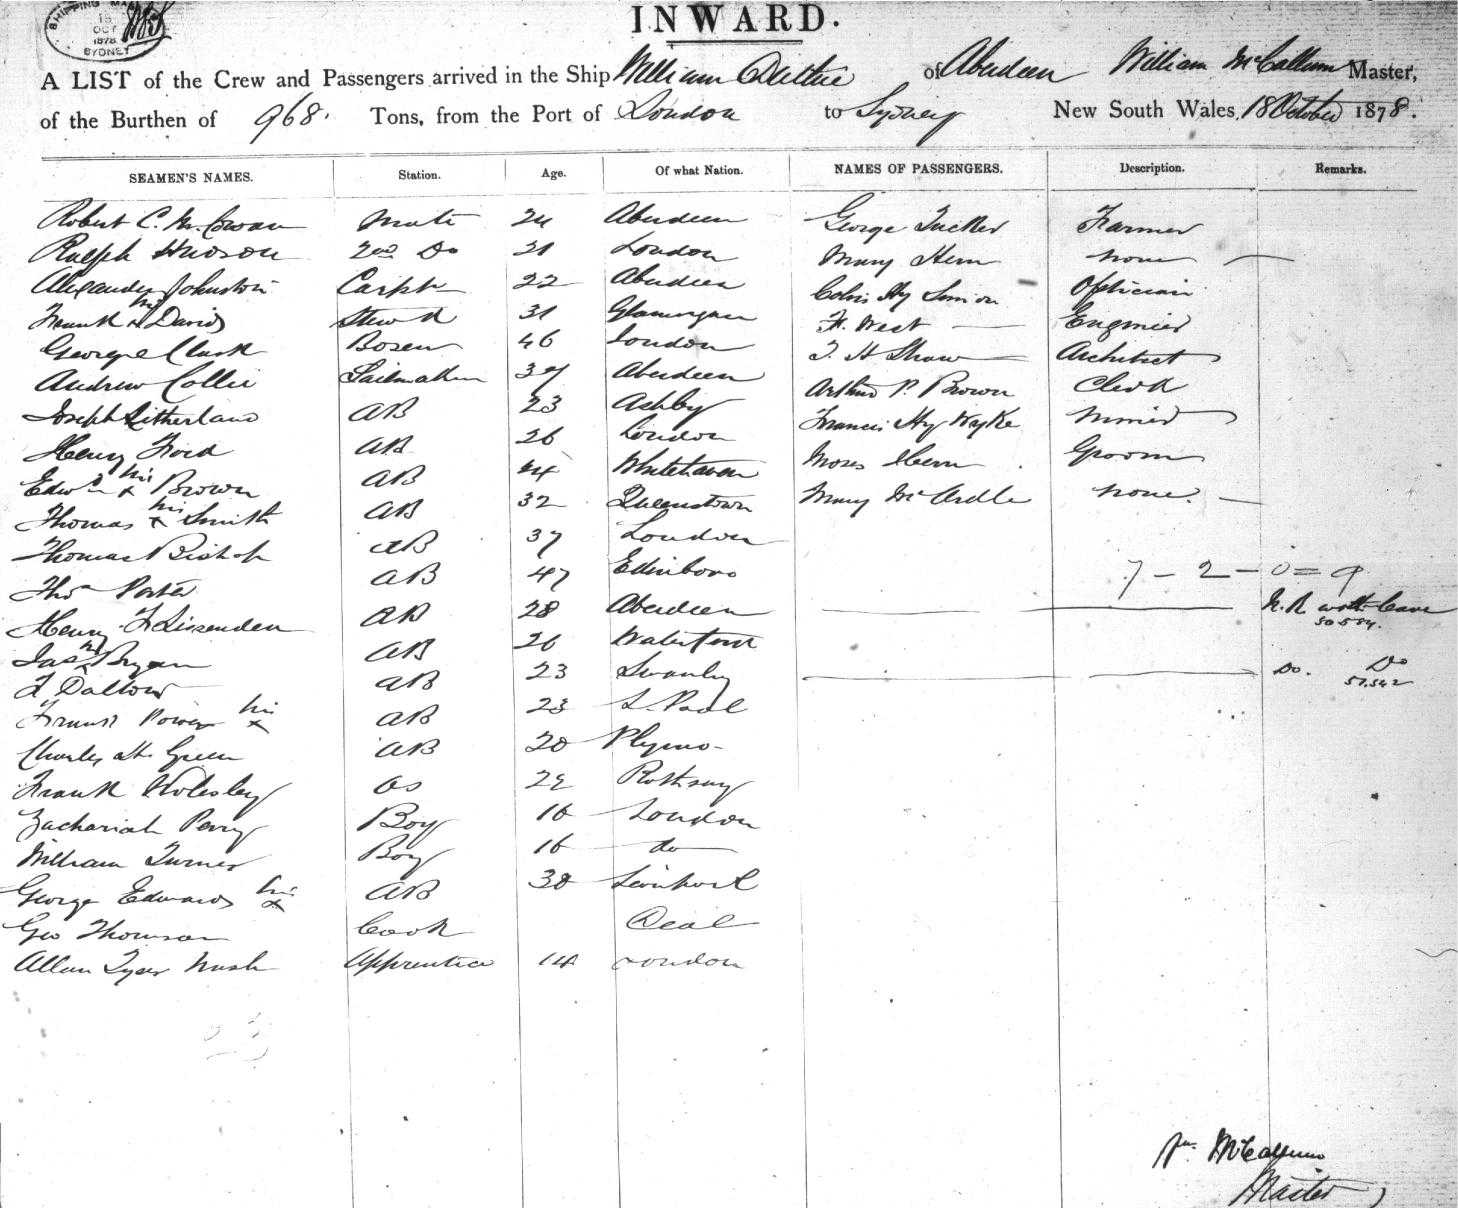 SHIPPING MA
18
OCT
1878
SYDNEY
INWARD.
A LIST of the Crew and Passengers arrived in the Ship William Duthie of Aberdeen William McCallum Master,
of the Burthen of 968. Tons, from the Port of London to Sydney New South Wales, 18 October 1878.
SEAMEN'S NAMES. Station. Age. Of what Nation. NAMES OF PASSENGERS. Description. Remarks.
Robert C. McCowan Mate 24 Aberdeen George Tucker Farmer
Ralph Hudson 2nd Do 21 London Mary Hern none
Alexander Johnston Carptr 22 Aberdeen Henry Optician
Frank his x David Stewd 31 Glamorgan F. West Engineer
George Clark Bosen 46 London T. H Shaw Architect
Andrew Collie Sailmaker 37 Aberdeen Arthur P. Brown Clerk
Joseph Litherland AB 23 Ashby Francis Hy Wyke
Henry Ford AB 26 London Moses Hern Groom
Edwd his x Brown AB 44 Whitehaven Mary McArdle none.
Thomas his x Smith AB 32 Queenstown
Thomas Bishop AB 37 London
Thos Porter AB 47 Edinboro 7 - 2 - 0 = 9
Henry F Lissenden AB 28 Aberdeen
Jas Bryan AB 26 Waterford
F Dallow AB 23 Swanley Do. Do
Frank Power his x AB 23 St. Paul
Charles H. Green AB 20 Plymo
Frank Wolesley OS 22 Rothsay
Zachariah Perry Boy 16 London
William Turner Boy 16 do
George Edwards his x AB 38 Liverpool
Geo Thomson Cook Deal
Allan Tyser Nash Apprentice 14 London
23
Wm McCallum
Master